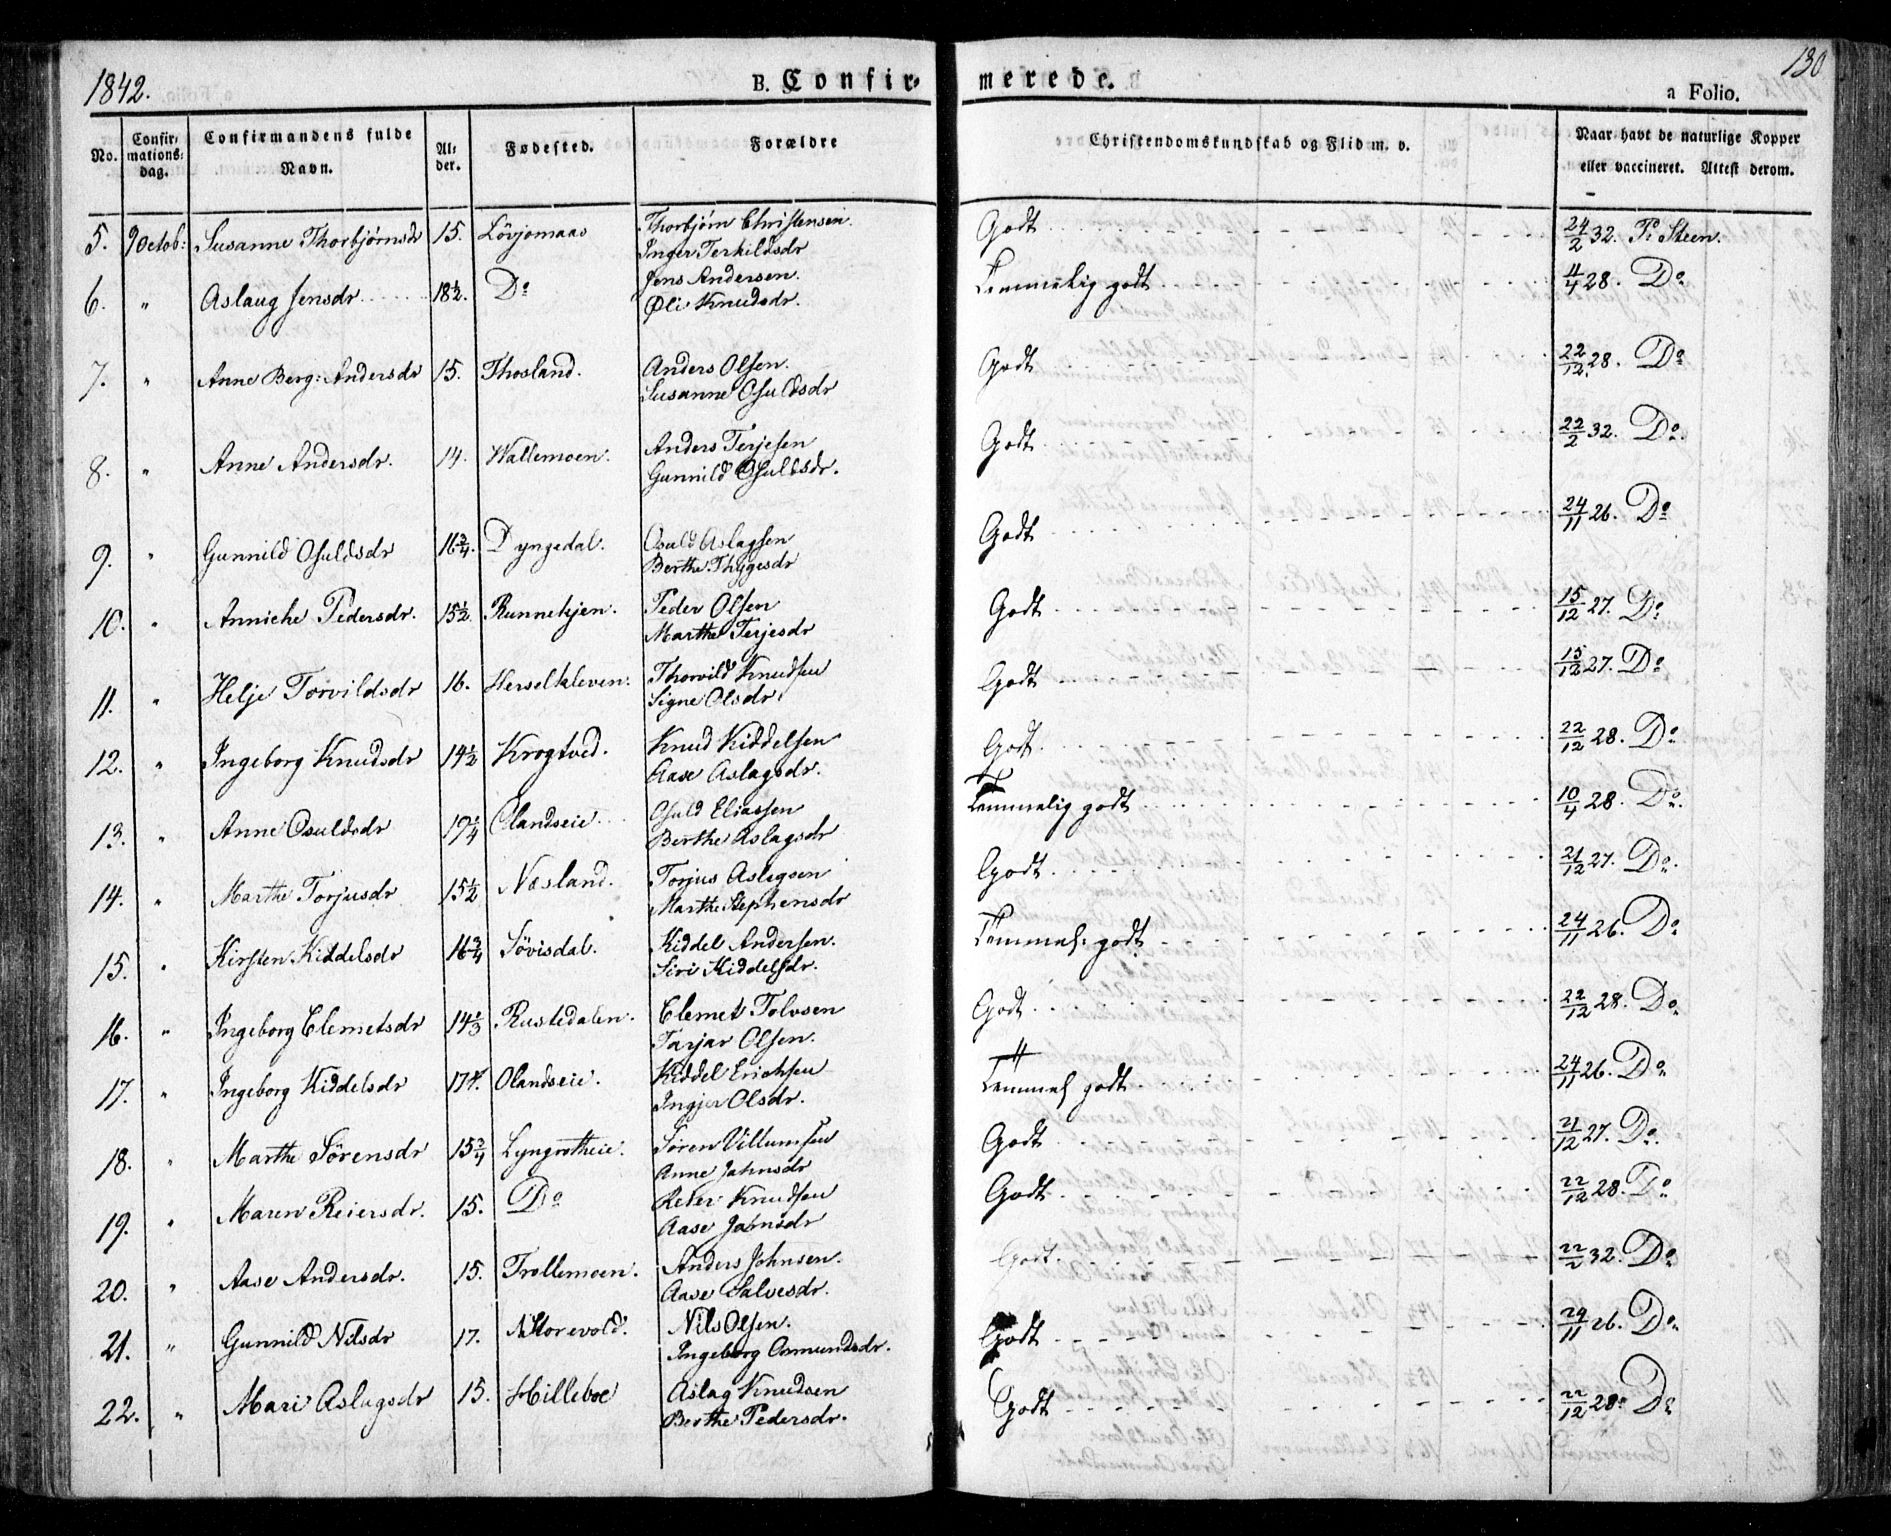 1842.
B. Confirmerede.
130
a Folio.
No. Confirmations: dag. Confirmandens fulde Navn. Alder. Fødested. Forældre Christendomskundskab og Flid m. v. Naar havt de naturlige Kopper eller vaccineret. Attest derom.
5. 9 Octob: Susanne Thorbjørnsdr 15. Lövjomaas Thorbjörn Christensen. Godt 24/2 32. Pr Steen.
Inger Terkildsdr
6. " Aslaug Jensdr 18 1/2. Do Jens Andersen. Temmelig godt 4/4 28. Do
Øli Knudsdr.
7. " Anne Berg: Andersdr 15. Thosland. Anders Olsen. Godt 22/12 28. Do
Susanne Osuldsdr
8. " Anne Andersdr. 14. Wallemoen. Anders Terjesen Godt 22/2 32. Do
Gunnild Osuldsdr.
9. " Gunnild Osuldsdr 16 3/4. Dyngedal. Osuld Aslagsen Godt 24/11 26. Do
Berthe Thygesdr
10. " Anniche Pedersdr. 15 1/2. Runnekjen. Peder Olsen Godt 15/12 27. Do
Marthe Terjesdr
11. " Helje Torvildsdr 16. Herselkleven. Thorvild Knudsen Godt 15/12 27. Do
Signe Olsdr.
12. " Ingeborg Knudsdr 14 1/2 Krogtved. Knud Kiddelsen Godt. 22/12 28. Do
Aase Aslagsdr.
13. " Anne Osuldsdr 19 1/4 Olandseie. Osuld Eliassen Temmelig godt 10/4 28. Do
Berthe Aslagsdr
14. " Marthe Torjusdr 15 1/2 Næsland. Torjus Aslagsen Godt. 21/12 27. Do
Marthe Stephensdr
15. " Kirsten Kiddelsdr 16 3/4 Sövisdal. Kiddel Andersen. Temmel. godt 24/11 26. Do
Siri Kiddelsdr.
16. " Ingeborg Clemetsdr 14 1/3 Rustedalen. Clemet Tolvsen Godt. 22/12 28. Do
Tarjar Olsen.
17. " Ingeborg Kiddelsdr 17 Olandseie. Kiddel Erichsen Temmel godt. 24/11 26. Do
Ingjer Olsdr.
18. " Marthe Sörensdr 15 3/4 Lyngrotheie. Sören Villumsen Godt 21/12 27. Do
Anne Jahnsdr
19. " Maren Reiersdr. 15. Do Reier Knudsen Godt 22/12 28. Do
Aase Jahnsdr
20. " Aase Andersdr. 15. Trollemoen. Anders Johnsen. Godt. 22/2 32. Do
Aase Salvesdr.
21. " Gunnild Nilsdr 17. Nils Olsen. Godt 24/11 26. Do
Ingeborg Osmundsdr.
22. " Mari Aslagsdr 15. Hilleboe Aslag Knudsen Godt 22/12 28. Do
Berthe Pedersdr.